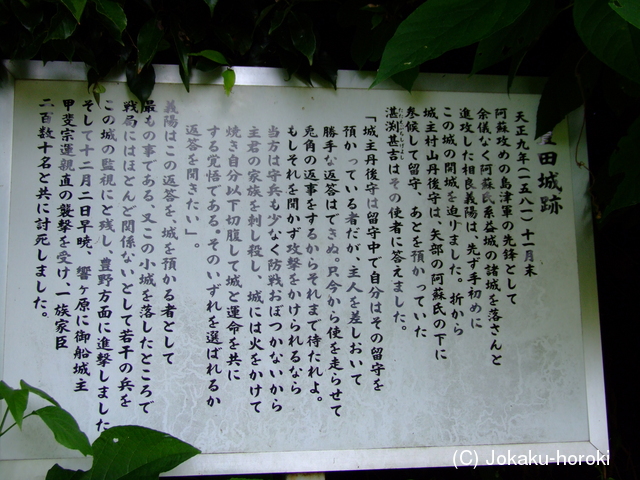 田城跡
天正九年(一五八一)十一月末
阿蘇攻めの島津軍の先鋒として
余儀なく阿蘇氏系益城の諸城を落さんと
進攻した相良義陽は、先ず手初めに
この城の開城を迫りました。折から
城主村山丹後守は、矢部の阿蘇氏の下に
参候して留守、あとを預かっていた
湛渕甚吉はその使者に答えました。
「城主丹後守は留守中で自分はその留守を
預かっている者だが、主人を差しおいて
勝手な返答はできぬ。只今から使を走らせて
兎角の返事をするからそれまで待たれよ。
もしそれを聞かず攻撃をかけられるなら
当方は守兵も少なく防戦おぼつかないから
主君の家族を刺し殺し、城には火をかけて
焼き自分以下切腹して城と運命を共に
する覚悟である。そのいずれを選ばれるか
返答を聞きたい」。
義陽はこの返答を、城を預かる者として
最もの事である、又この小城を落したところで
戦局にはほとんど関係ないとして若干の兵を
この城の監視にと残し、豊野方面に進撃しました
そして十二月二日早暁、響ヶ原に御船城主
甲斐宗運親直の襲撃を受け、一族家臣
二百数十名と共に討死しました。
(C) Jokaku-horoki